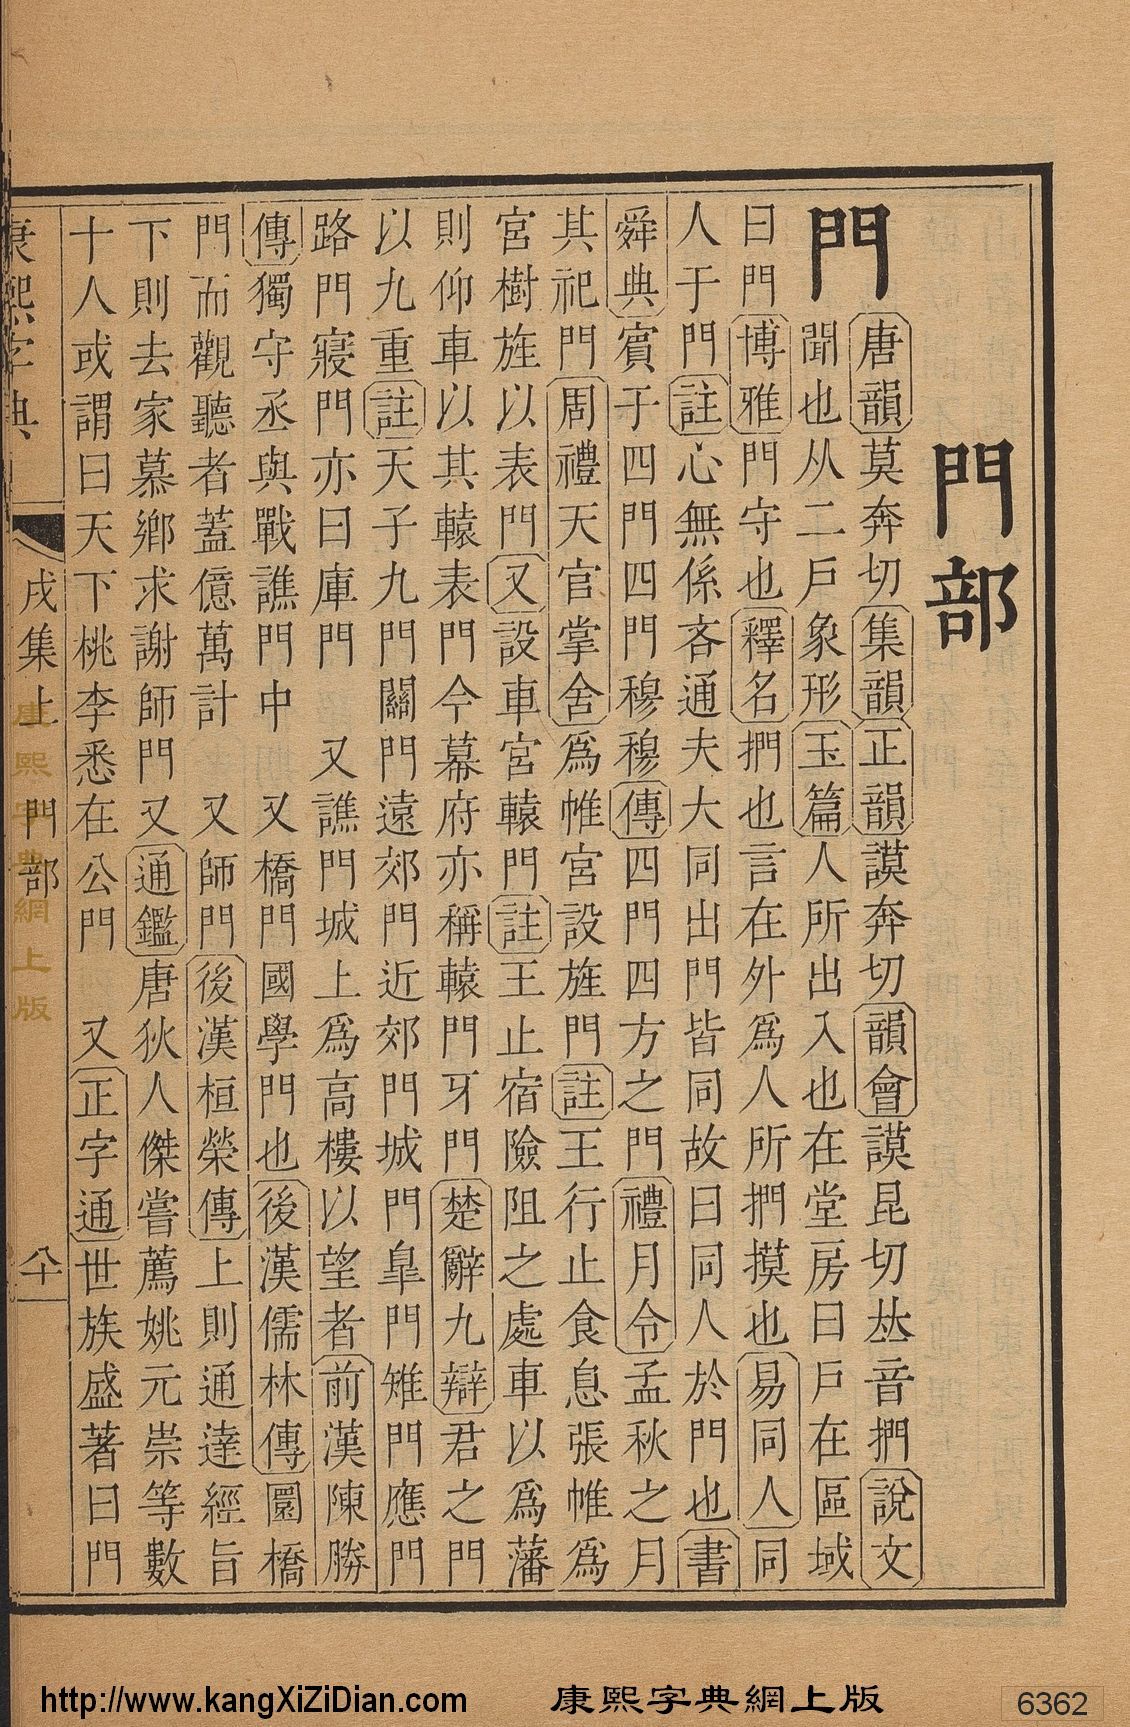 門部
門
唐韻莫奔切集韻正韻謨奔切韻會謨昆切𠀤音捫說文
聞也从二戶象形玉篇人所出入也在堂房曰戶在區域
曰門博雅門守也釋名捫也言在外爲人所捫摸也易同人同
人于門註心無係吝通夫大同出門皆同故曰同人於門也書
舜典賔于四門四門穆穆傳四門四方之門禮月令孟秋之月
其祀門周禮天官掌舍爲帷宮設旌門註王行止食息張帷爲
宮樹旌以表門又設車宮轅門註王止宿險阻之處車以爲藩
則仰車以其轅表門今幕府亦稱轅門牙門楚辭九辯君之門
以九重註天子九門關門遠郊門近郊門城門臯門雉門應門
路門寢門亦曰庫門 又譙門城上爲高樓以望者前漢陳勝
傳獨守丞與戰譙門中 又橋門國學門也後漢儒林傳圜橋
門而觀聽者蓋億萬計 又師門後漢桓榮傳上則通達經旨
下則去家慕鄉求謝師門 又通鑑唐狄人傑嘗薦姚元崇等數
十人或謂曰天下桃李悉在公門 又正字通世族盛著曰門
康熙字典 戌集上 門部 八十
康熙字典網上版
http://www.kangXiZiDian.com 康熙字典網上版 6362